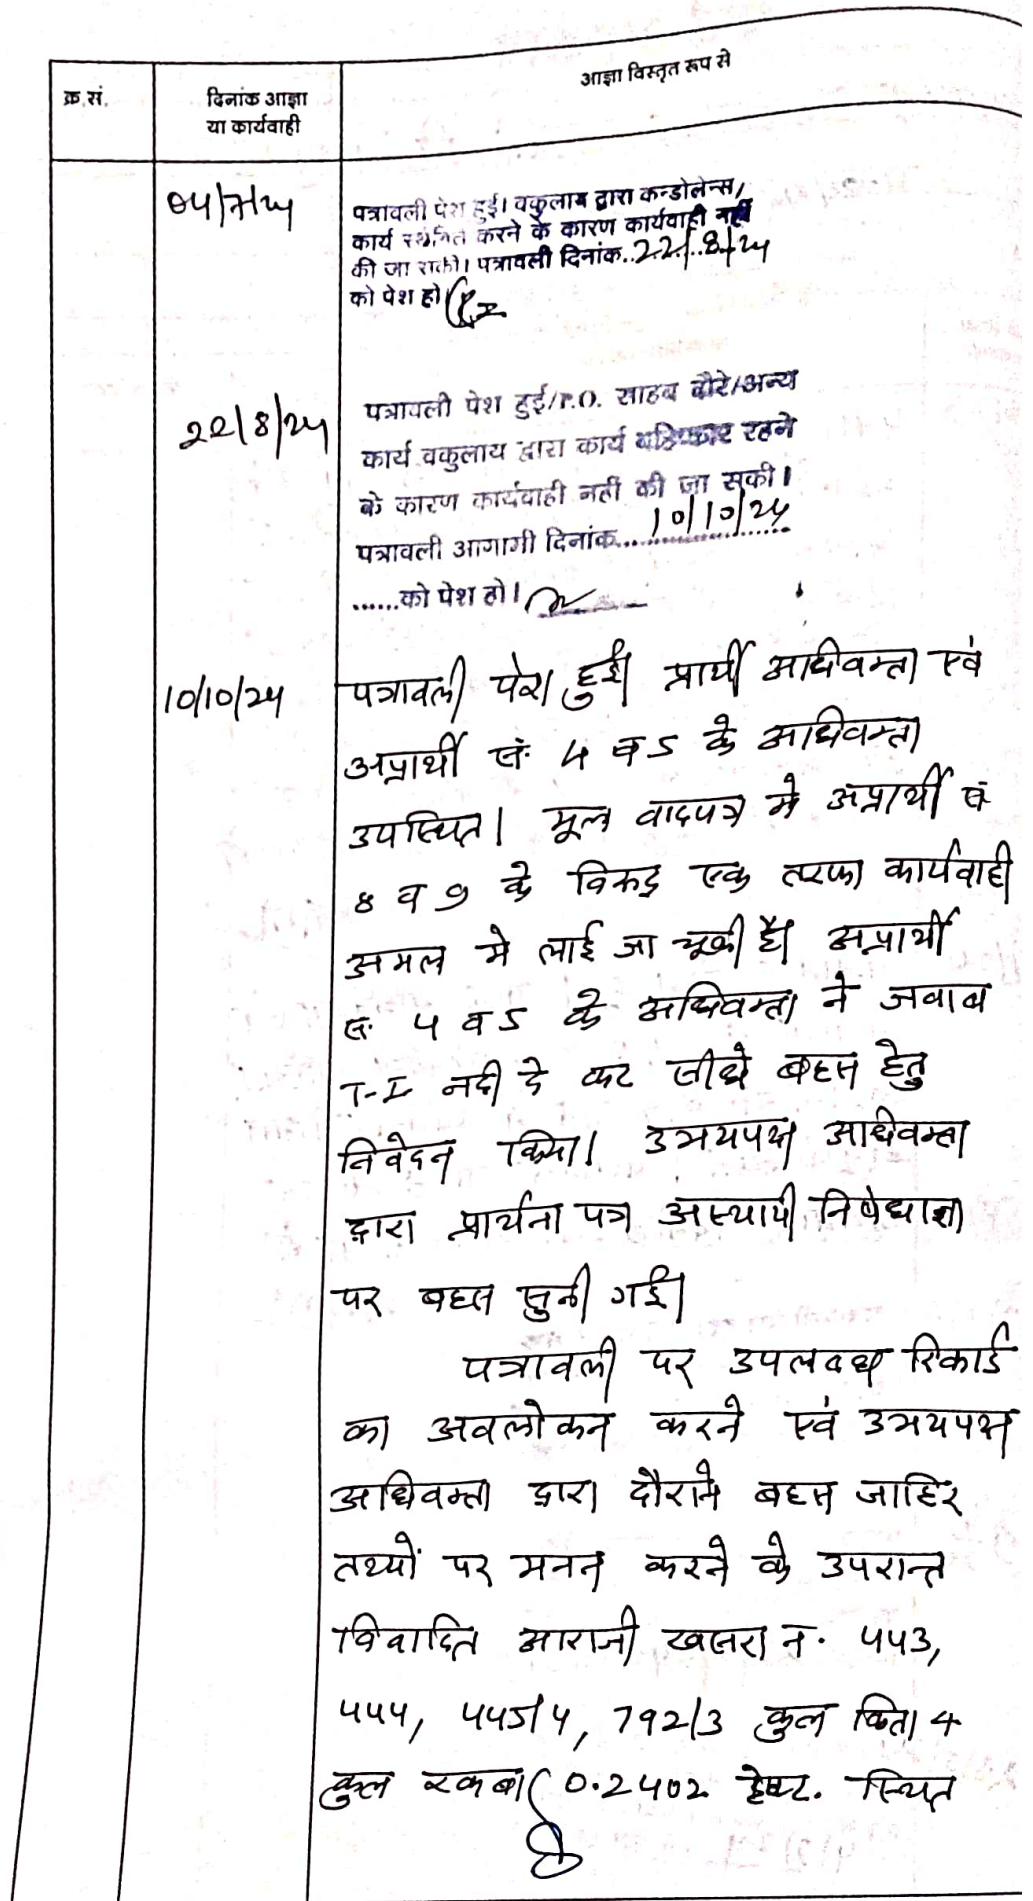 क्र.सं.
दिनांक आज्ञा
या कार्यवाही
आज्ञा विस्तृत रूप से
04/7/24
पत्रावली पेश हुई। वकुलाय द्वारा कन्डोलेन्स/
कार्य स्थगित करने के कारण कार्यवाही नहीं
की जा सकी। पत्रावली दिनांक..22/8/24
को पेश हो
22/8/24
पत्रावली पेश हुई/P.O. साहब दौरे/अन्य
कार्य वकुलाय द्वारा कार्य बहिष्कार रहने
के कारण कार्यवाही नहीं की जा सकी।
पत्रावली आगामी दिनांक....10/10/24
......को पेश हो।
10/10/24
पत्रावली पेश हुई। प्रार्थी अधिवक्ता एवं
अप्रार्थी सं. 4 व 5 के अधिवक्ता
उपस्थित। मूल वादपत्र मे अप्रार्थी सं
8 व 9 के विरूद्ध एक तरफा कार्यवाही
अमल मे लाई जा चूकी है। अप्रार्थी
सं. 4 व 5 के अधिवक्ता ने जवाब
T-I नही दे कर सीधे बहस हेतु
निवेदन किया। उभयपक्ष अधिवक्ता
द्वारा प्रार्थना पत्र अस्थायी निषेधाज्ञा
पर बहस सुनी गई।
पत्रावली पर उपलब्ध रिकार्ड
का अवलोकन करने एवं उभयपक्ष
अधिवक्ता द्वारा दौराने बहस जाहिर
तथ्यों पर मनन करने के उपरान्त
विवादित आराजी खसरा न. 443,
444, 445/4, 792/3 कुल किता 4
कुल रकबा 0.2402 हैक्ट. स्थित